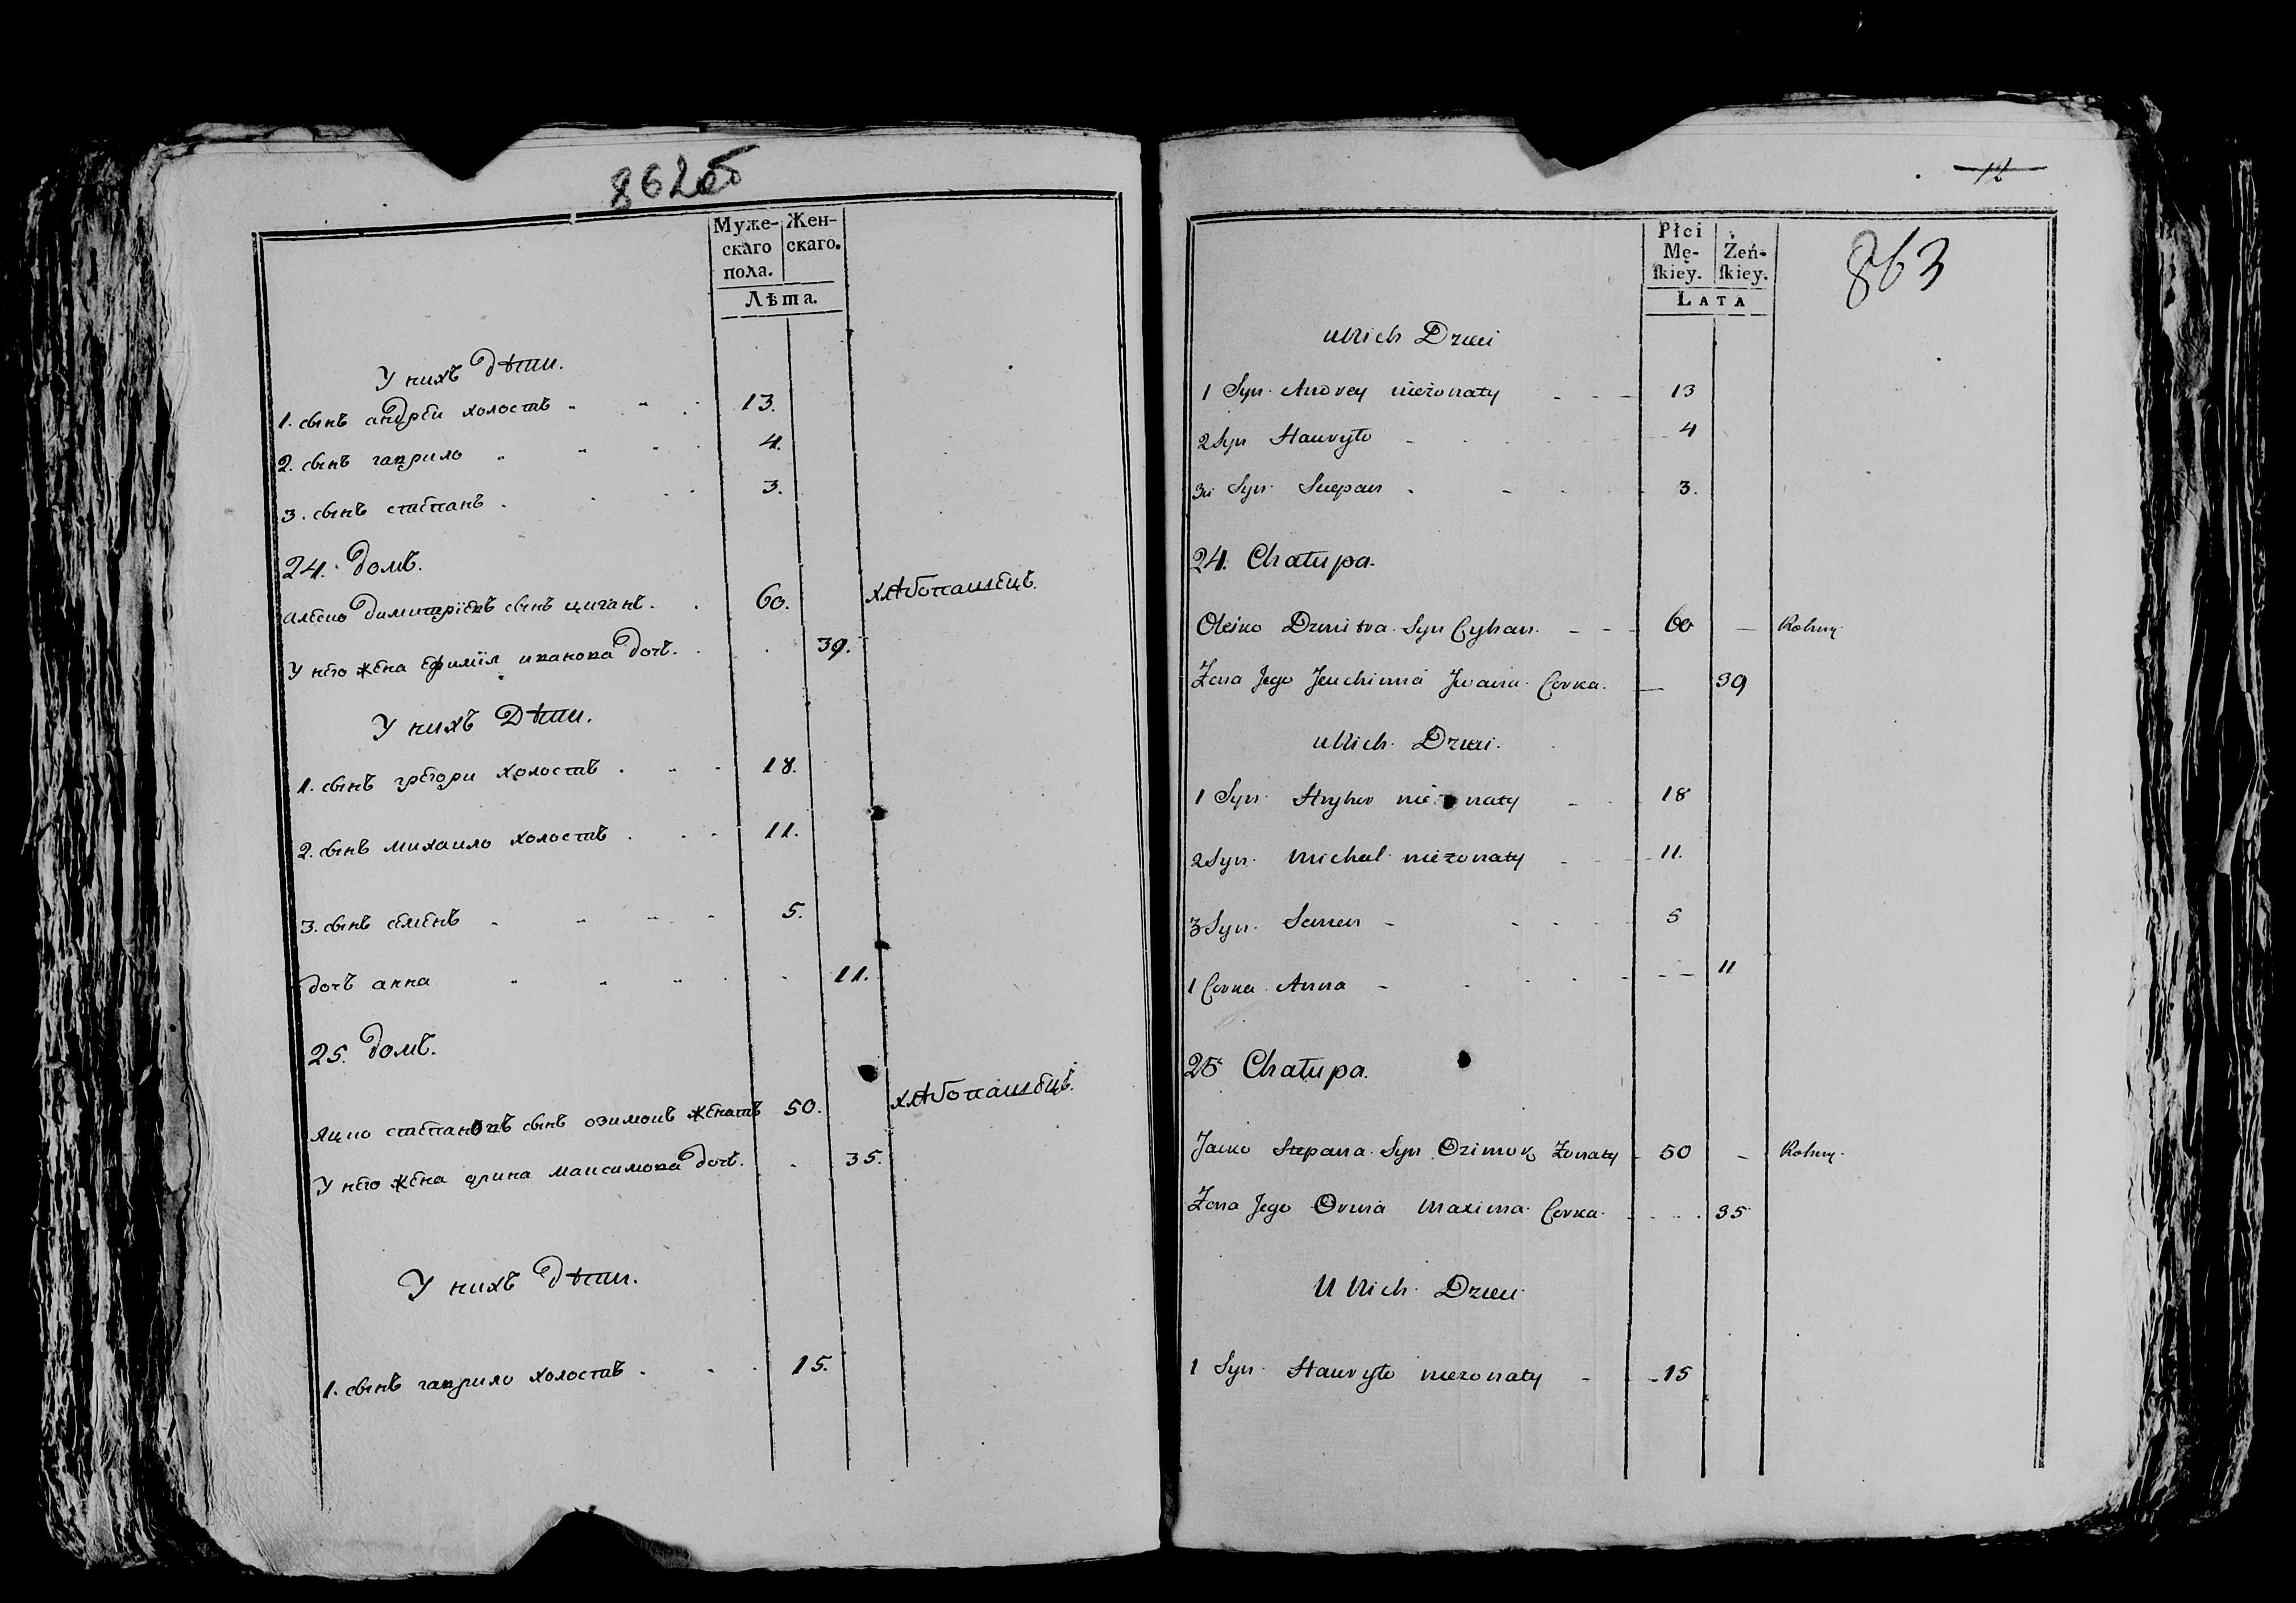 862об
Муже-скаго пола. Жен-скаго.
Лѣта.
У нихъ дѣти.
1. сынъ андрей холостъ 13.
2. сынъ гаврило 4.
3. сынъ степанъ 3.
24. домъ.
алекко димитріевъ сынъ циганъ. 60. хлѣбопашецъ.
У него жена ефимія иванова дочь. 39.
У нихъ Дѣти.
1. сынъ грегори холостъ 18.
2. сынъ михаило холостъ 11.
3. сынъ семенъ 5.
дочь анна 11.
25. домъ.
яцко степановъ сынъ озимокъ женатъ 50. хлѣбопашецъ.
У него жена орина максимова дочь. 35.
У нихъ дѣти.
1. сынъ гаврило холостъ 15.
12
863
Płci Mę-ſkiey. Żeń-ſkiey.
LATA
u Nich Dzieci
1 Syn Andrey nieżonaty 13
2 Syn Hauryło 4
3 Syn Sciepan 3.
24. Chałupa.
Oleiko Dzmitra Syn Cyhan. 60 Rolniq
Żona Jego Jeuchimia Jwana Corka. 39
u Nich Dzieci.
1 Syn Hryhor nieżonaty 18
2 Syn Michał nieżonaty 11.
3 Syn Semen 5
1 Corka Anna 11
25 Chałupa.
Jacko Stepana Syn Ozimok Żonaty 50 Rolniq
Żona Jego Oryna Maxima Corka 35
U Nich Dzieci
1 Syn Hauryło nieżonaty 15